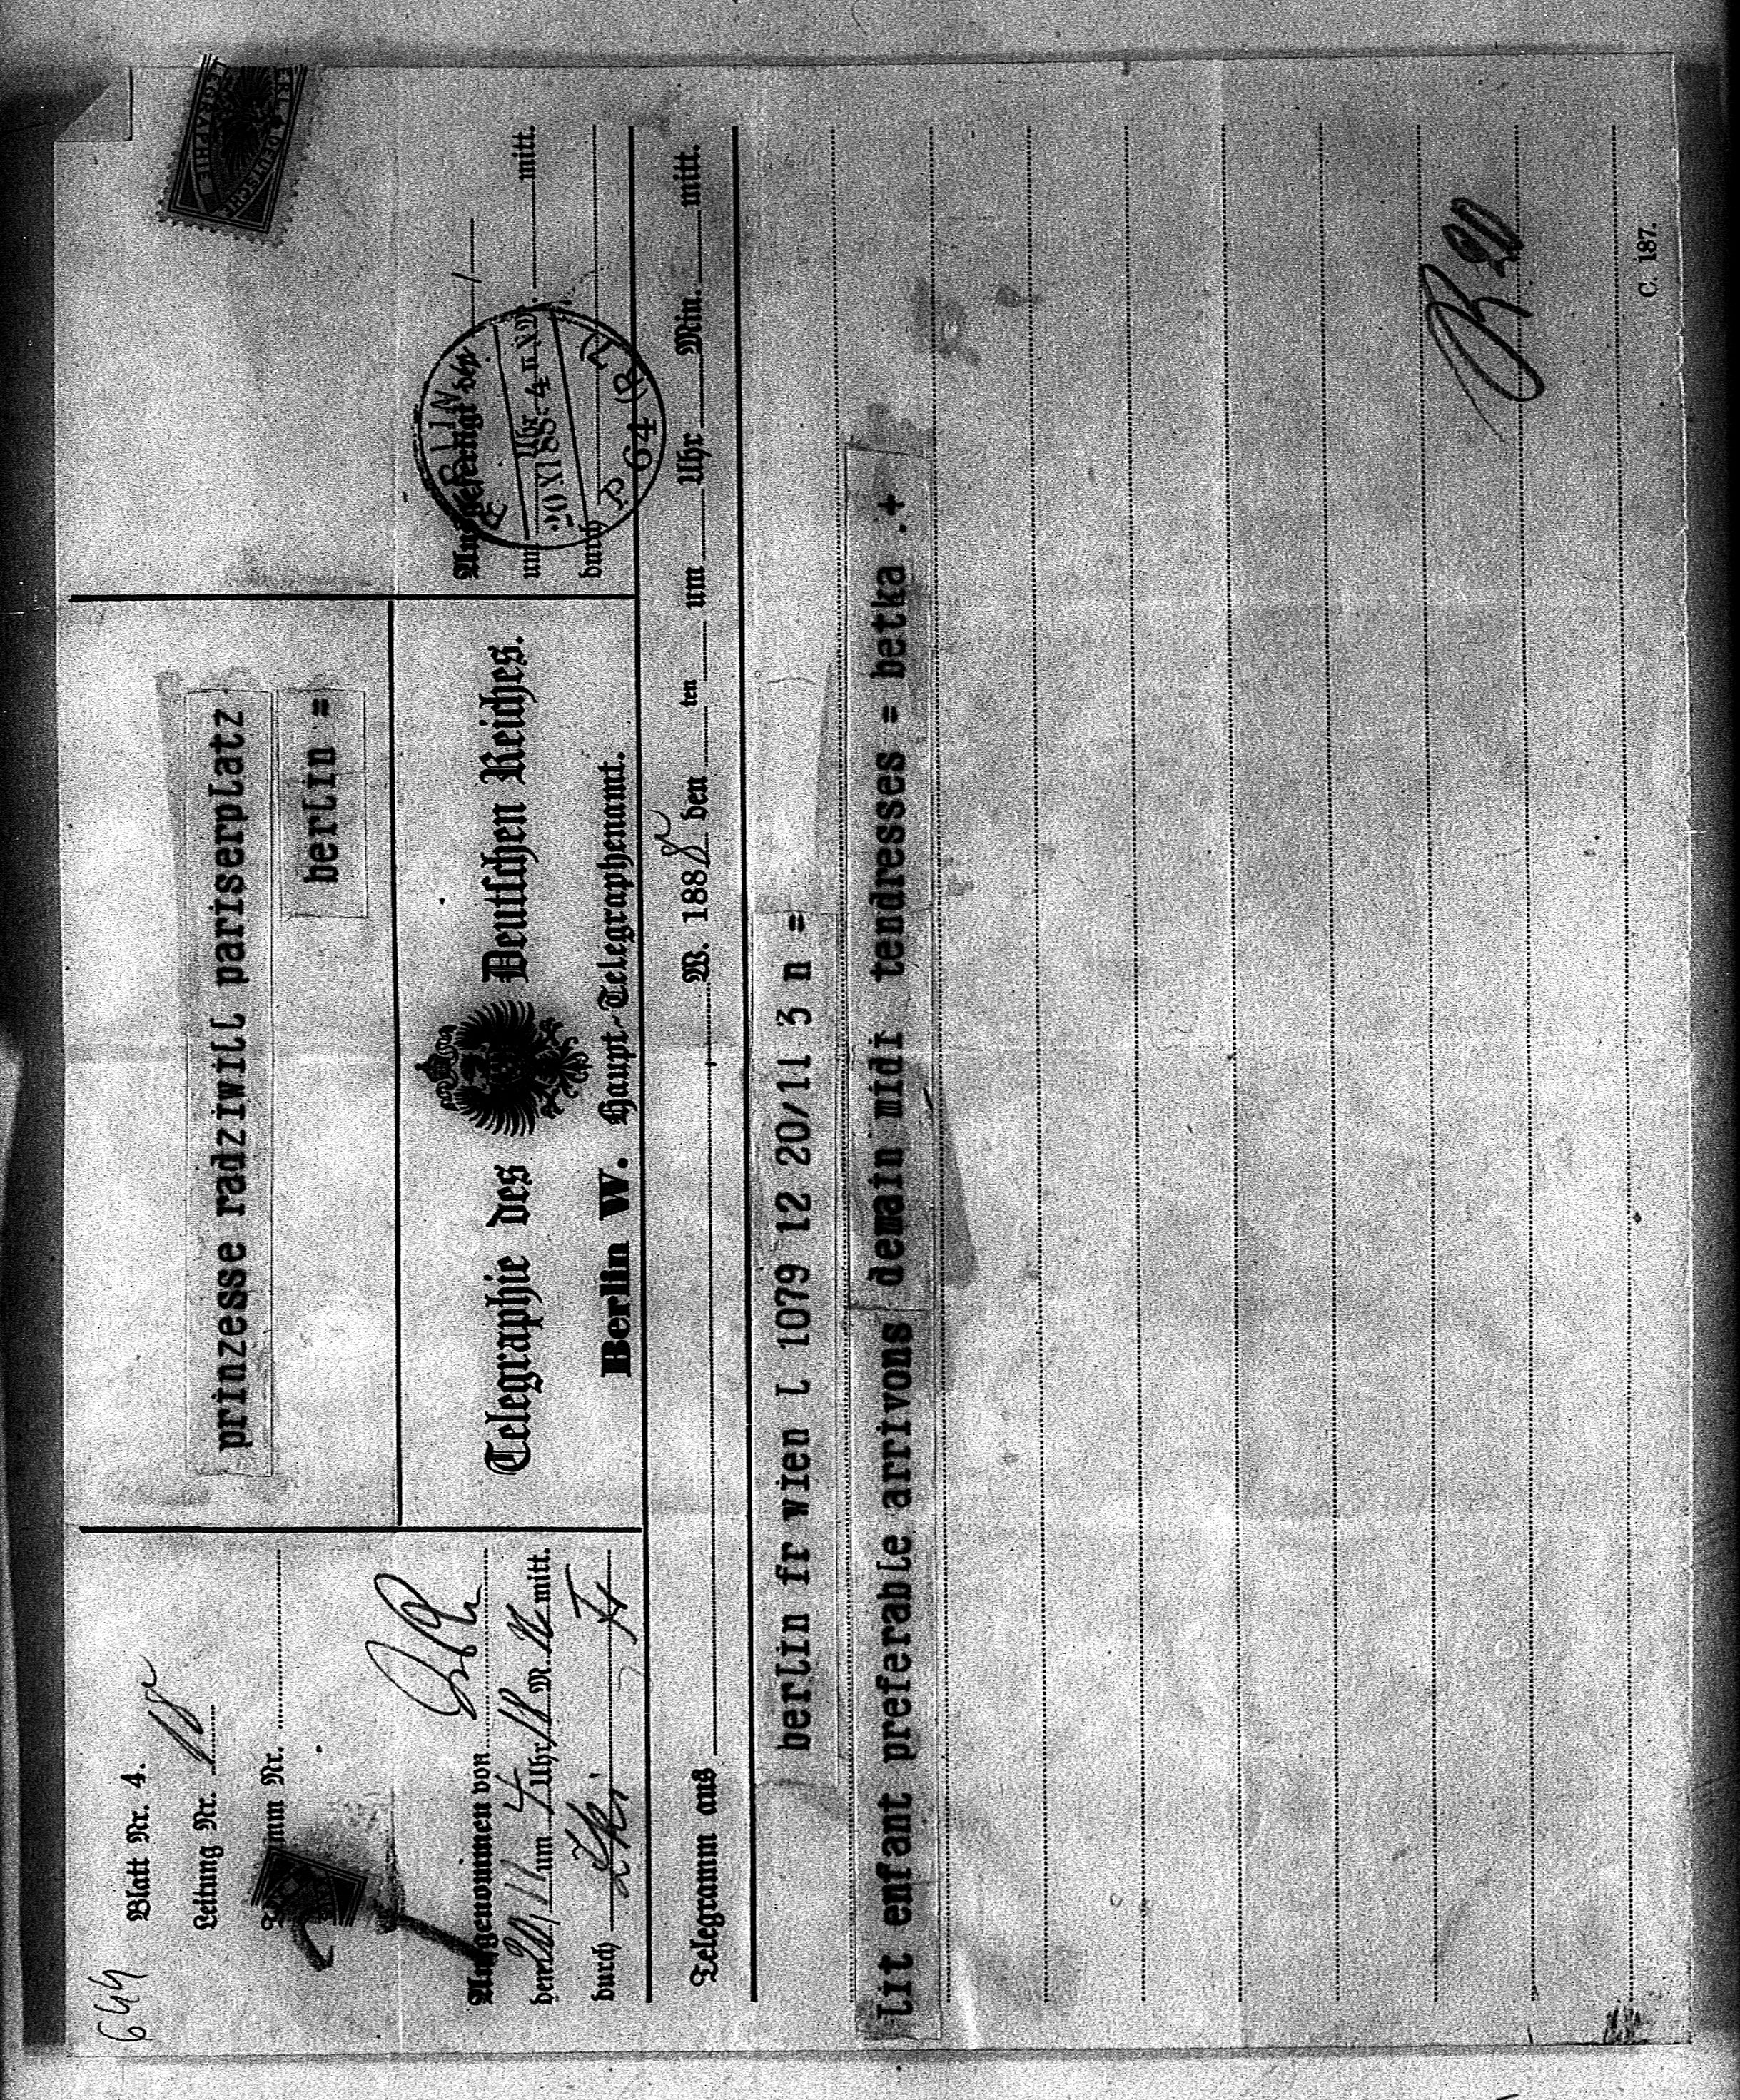 644
Blatt Nr. 4.
Leitung Nr.
Nr.
Angenommen von
den 20/11 um 4 Uhr M. mitt.
durch
prinzesse radziwill pariserplatz
berlin =
Telegraphie des Deutschen Reiches.
Berlin W. Haupt-Telegraphenamt.
DEUTSCHE
Ausgefertigt den
um Uhr mitt.
durch
BERLIN
20 XI 88. 4
P 64 (R)
Telegramm aus W. 1888 den ten um Uhr Min. mitt.
berlin fr wien l 1079 12 20/11 3 n =
lit enfant preferable arrivons demain midi tendresses = betka .+
C. 187.